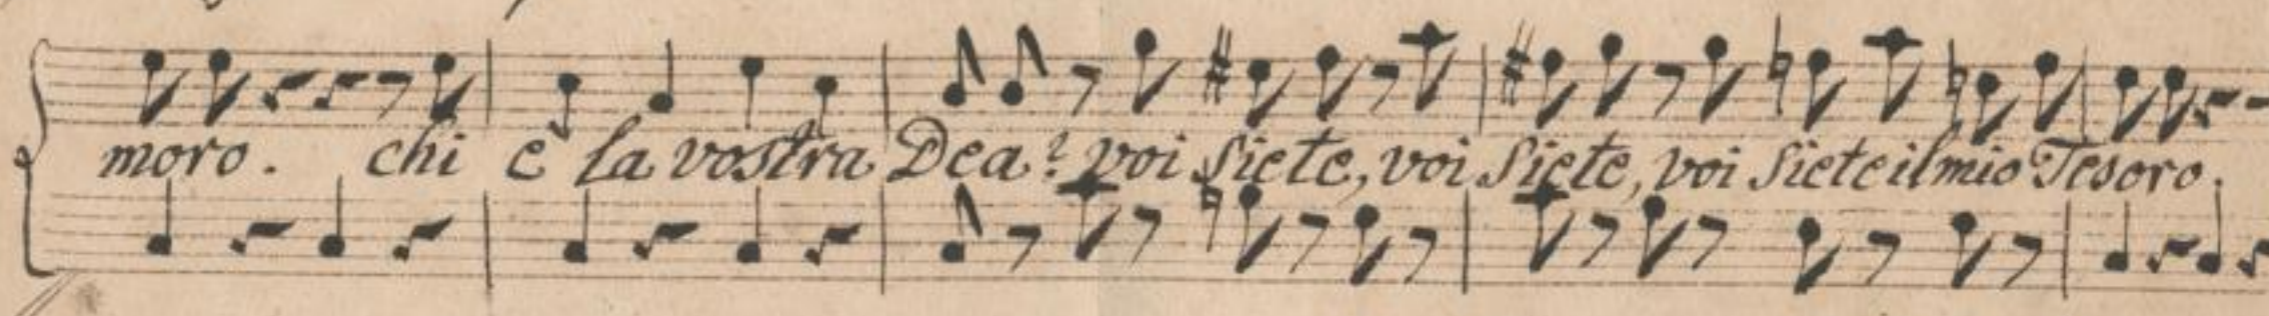 moro. chi e la vostra Dea? voi siete, voi siete, voi siete il mio Tesoro.